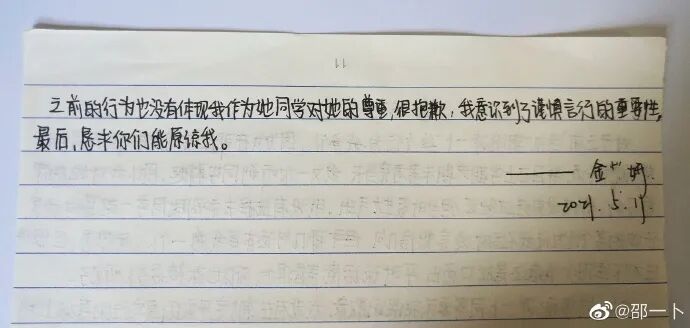 之前的行为也没有体现我作为她同学对她的尊重,很抱歉,我意识到了谨慎言行的重要性,
最后,恳求你们能原谅我。
2021.5.11
@邵一卜